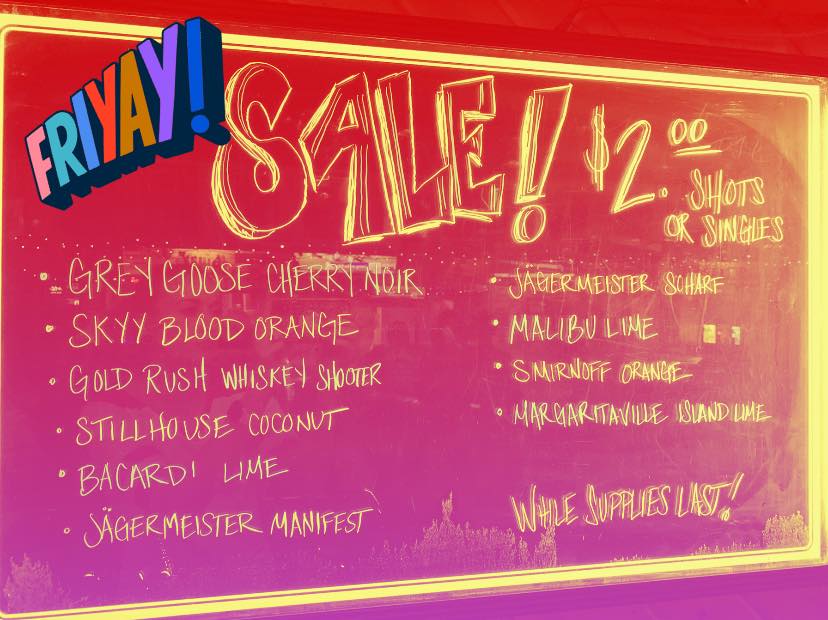 FRIYAY!
SALE! $2.00
SHOTS
OR SINGLES
• GREY GOOSE CHERRY NOIR
• SKYY BLOOD ORANGE
• GOLD RUSH WHISKEY SHOOTER
• STILLHOUSE COCONUT
• BACARDI LIME
• JÄGERMEISTER MANIFEST
• JÄGERMEISTER SCHARF
• MALIBU LIME
• SMIRNOFF ORANGE
• MARGARITAVILLE ISLAND LIME
WHILE SUPPLIES LAST!